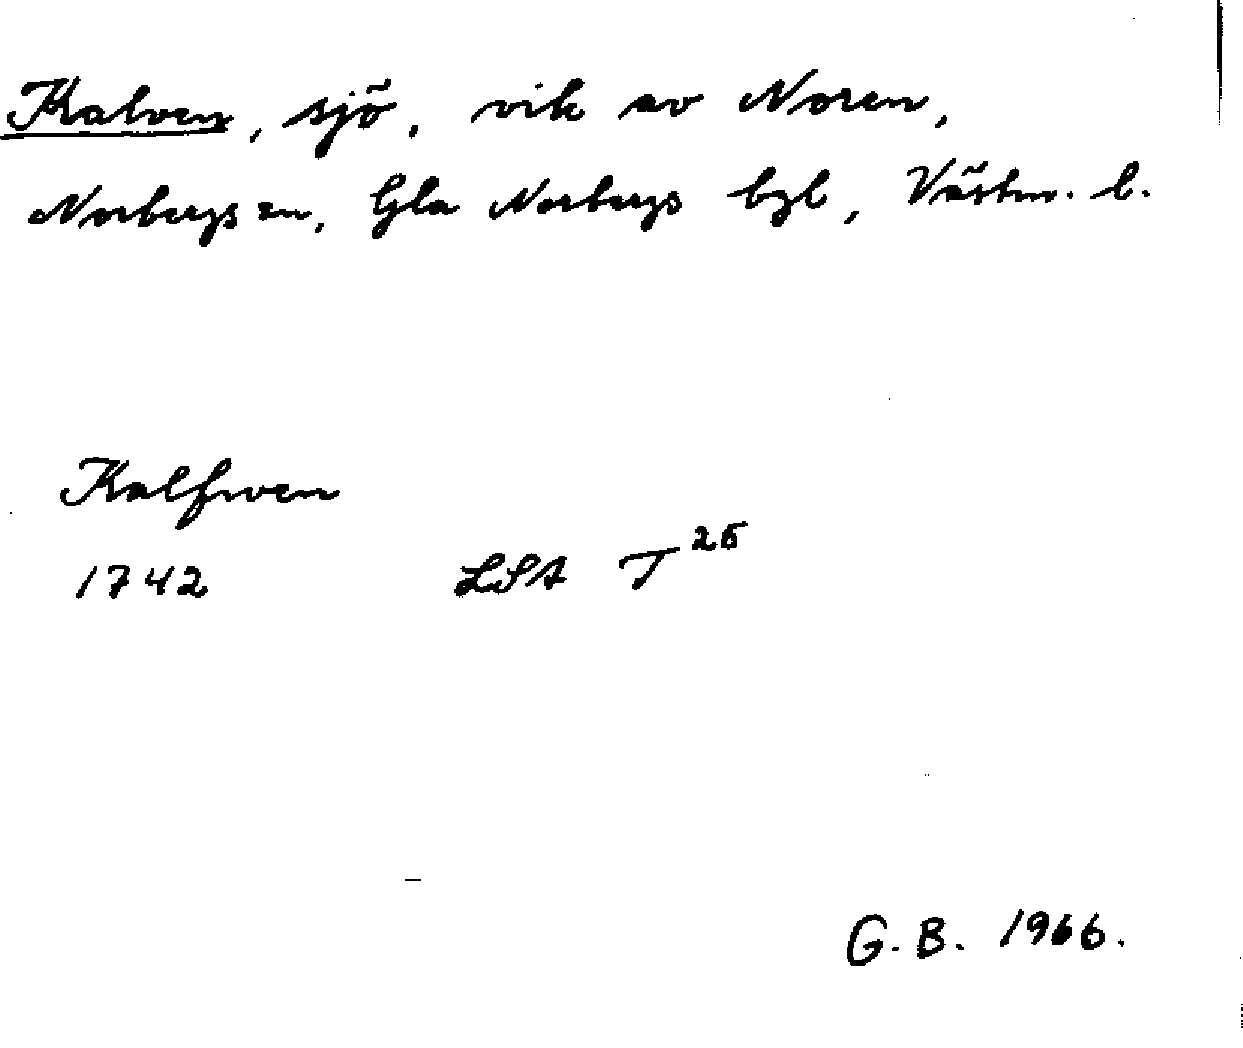 Kalven, sjö, vik av Noren,
Norbergs sn, Gla Norbergs bgl, Västm. l.
Kalfwen
1742 LSA T 26
G. B. 1966.